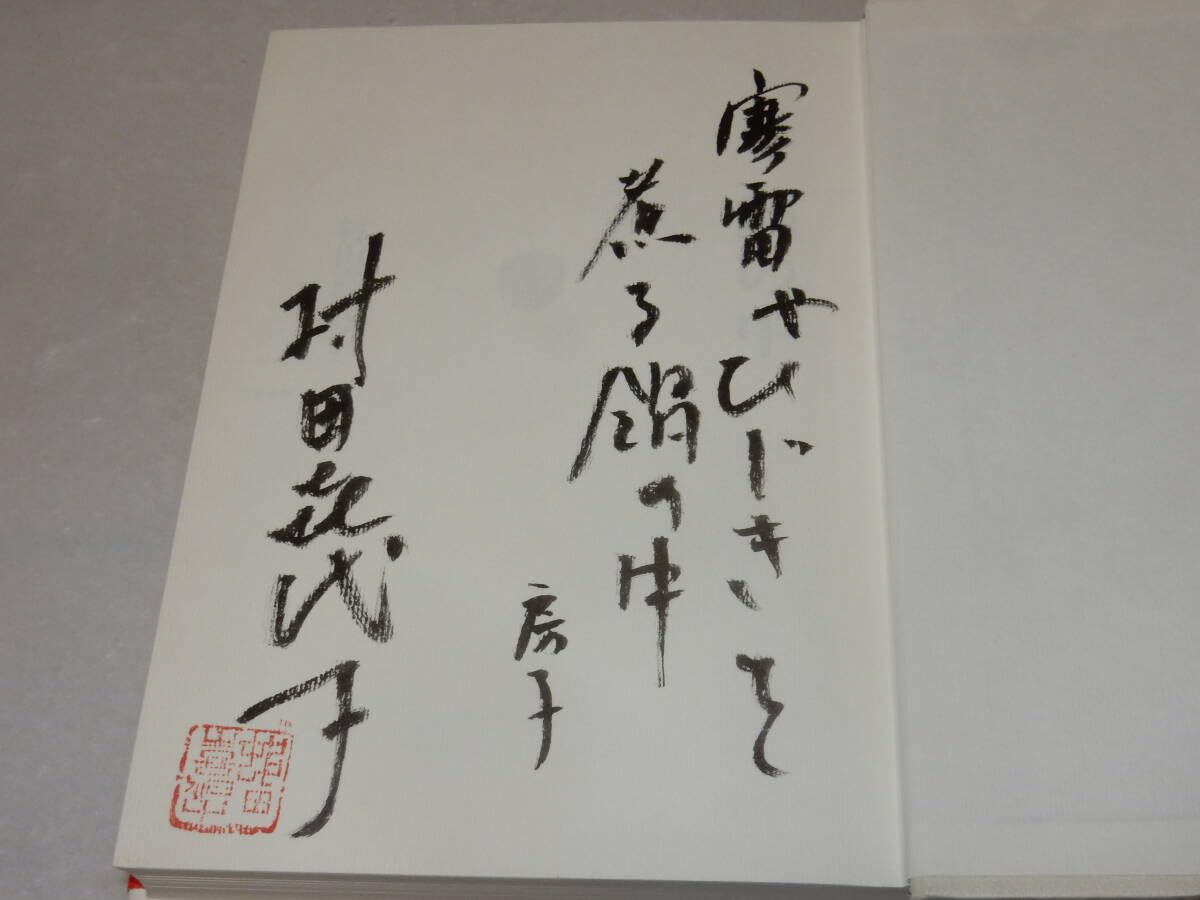 寒雷やひじきを
煮る鍋の中
房子
村田喜代子